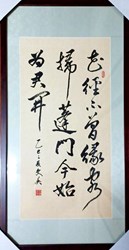 花径不曾缘客
扫蓬门今始
为君开